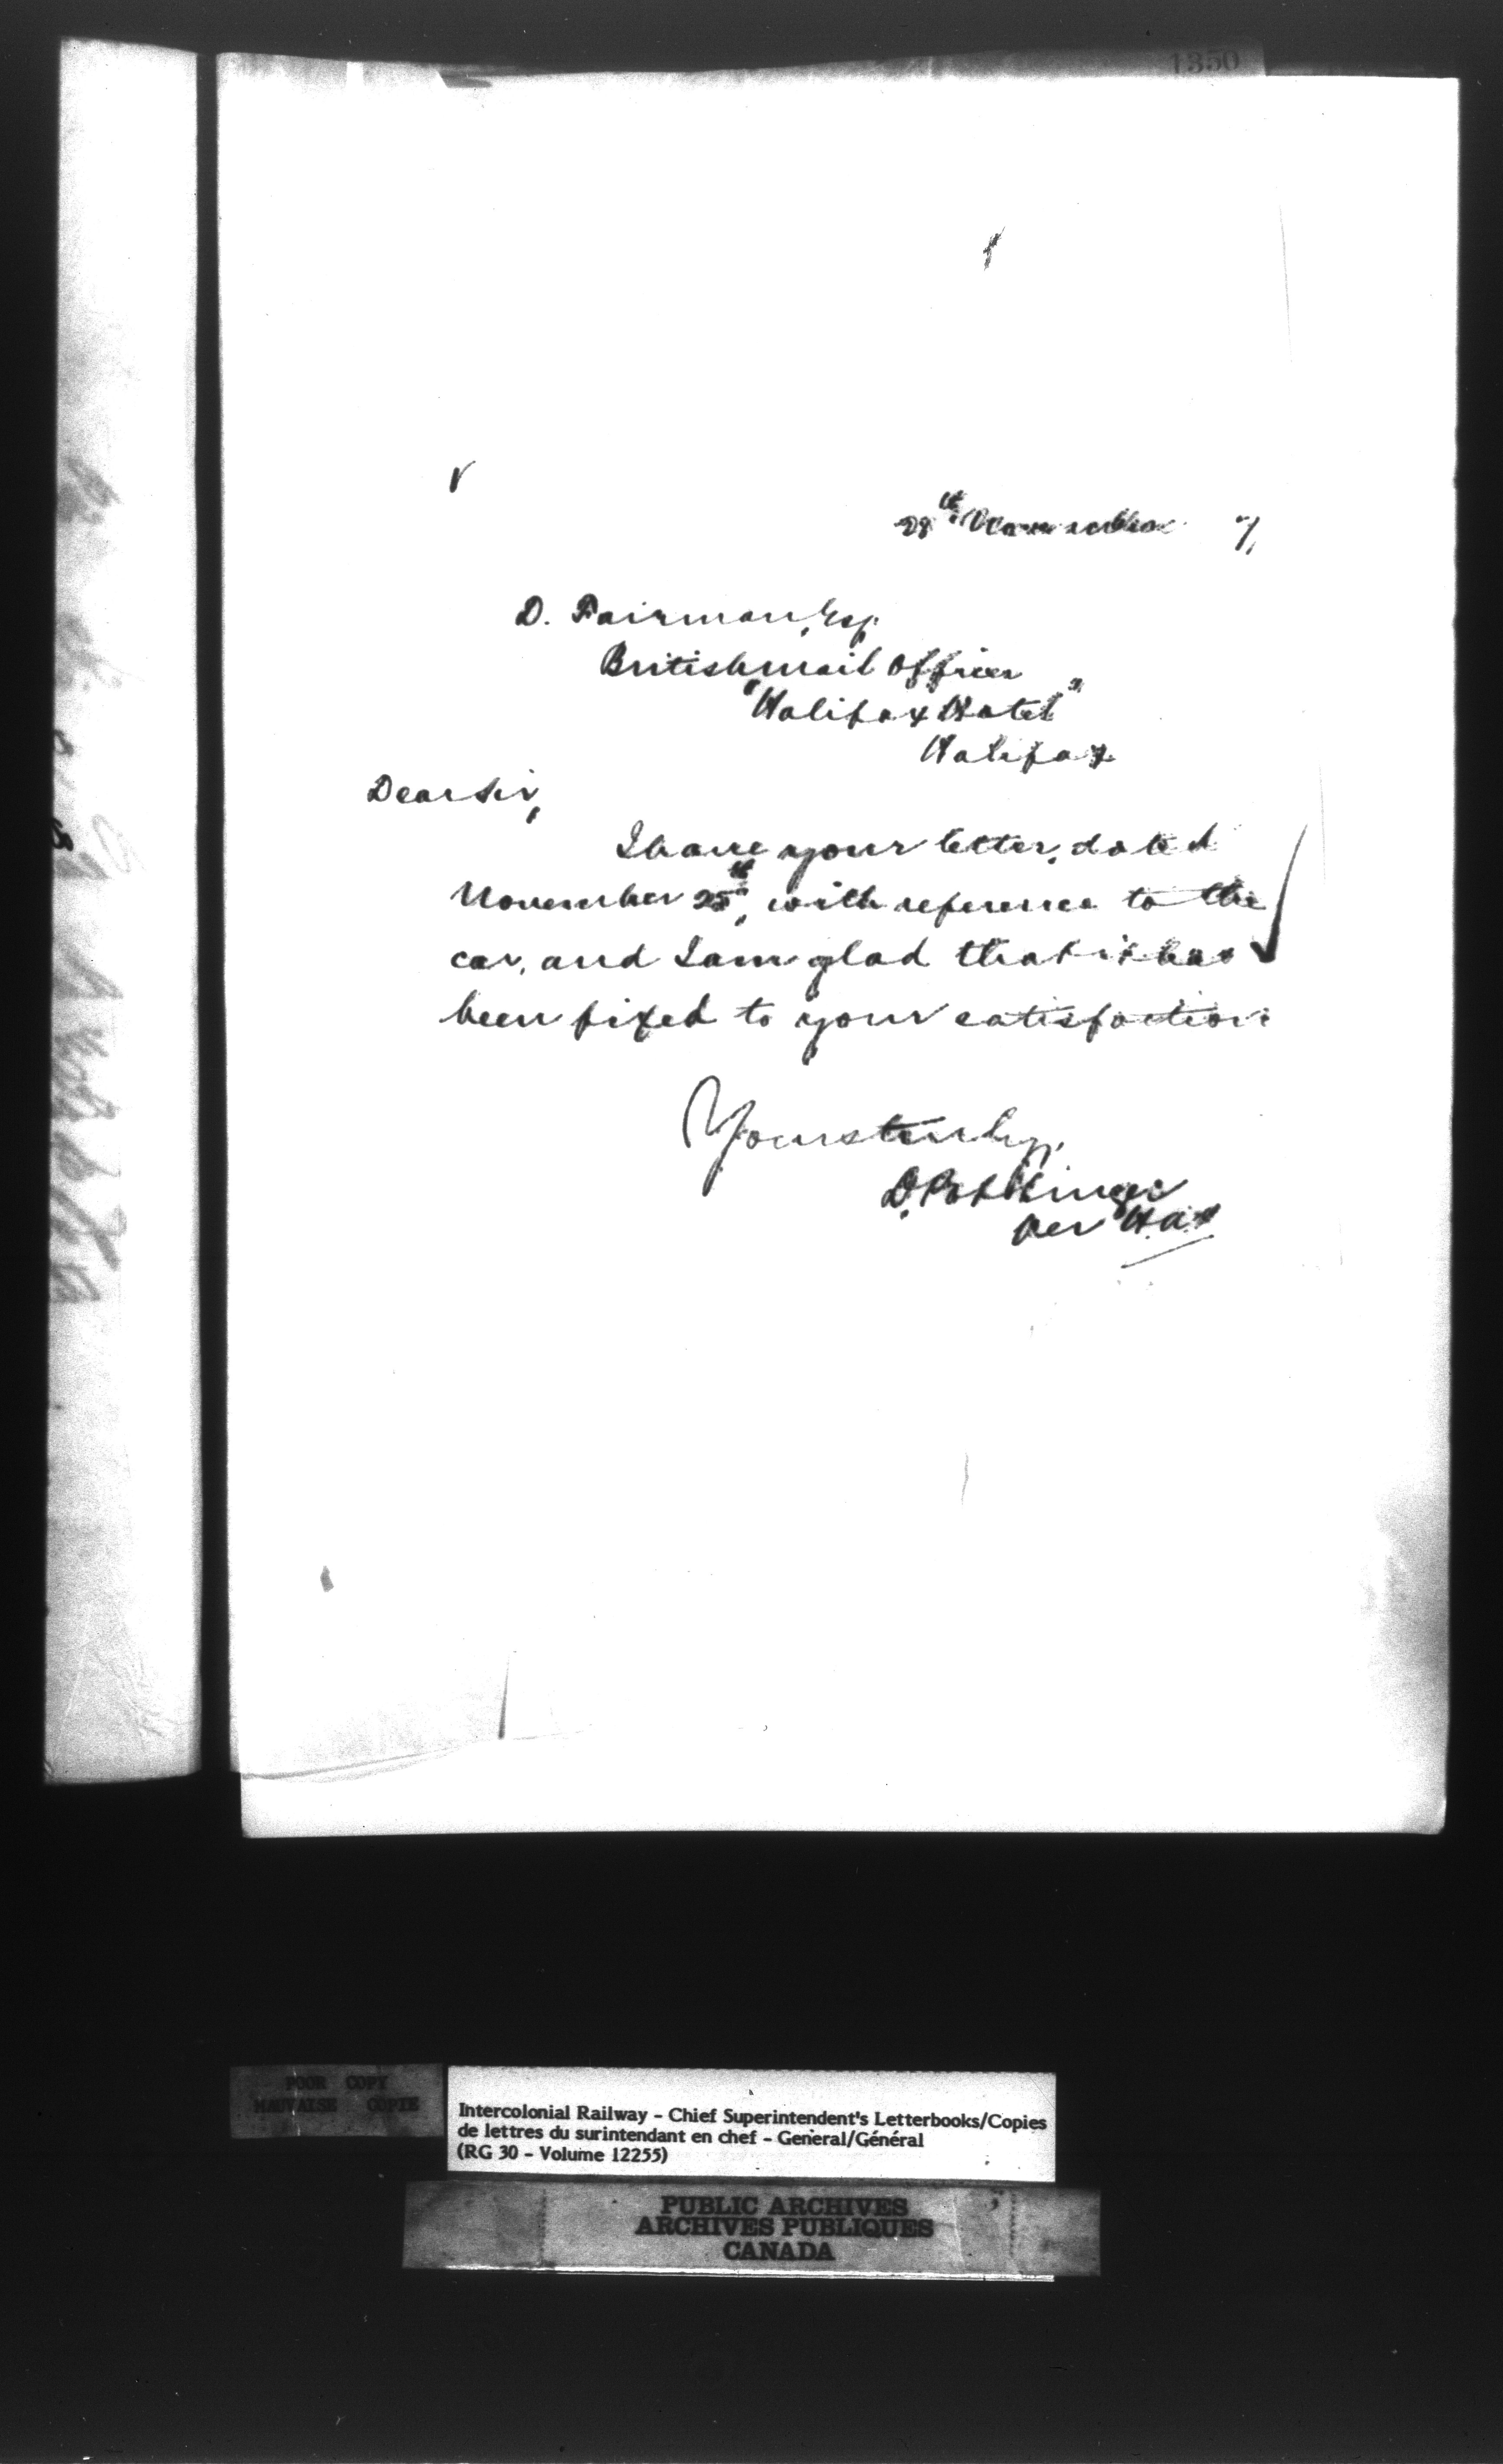 1350
28th November 7,
D. Fairman, Esq.
British mail Officer
"Halifax Hotel"
Halifax
Dear Sir,
I have your letter, dated
November 25th, with reference to the
car, and I am glad that it has
been fixed to your satisfaction.
Yours truly,
D. Pottinger
Per
POOR COPY
MAUVAISE COPIE
Intercolonial Railway - Chief Superintendent's Letterbooks/Copies
de lettres du surintendant en chef - General/Général
(RG 30 - Volume 12255)
PUBLIC ARCHIVES
ARCHIVES PUBLIQUES
CANADA